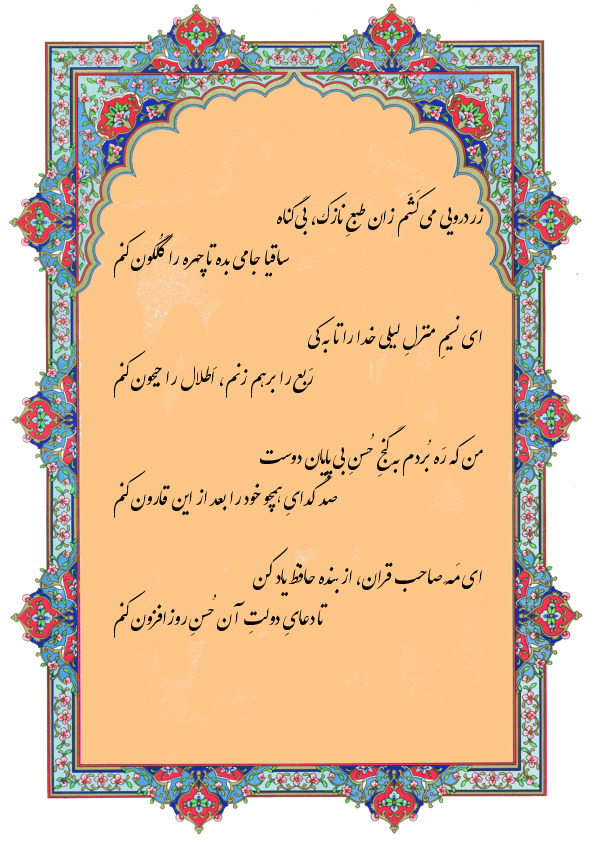 زردرویی می‌کَشَم زان طبعِ نازک، بی‌گناه
ساقیا جامی بده تا چهره را گُلگون کنم
ای نسیمِ منزلِ لیلی خدا را تا به کی
رَبع را برهم زنم، اَطلال را جیحون کنم
من که رَه بُردم به گنجِ حُسنِ بی‌پایان دوست
صد گدایِ همچو خود را بعد از این قارون کنم
ای مَهِ صاحب قران، از بنده حافظ یاد کن
تا دعایِ دولتِ آن حُسنِ روزافزون کنم